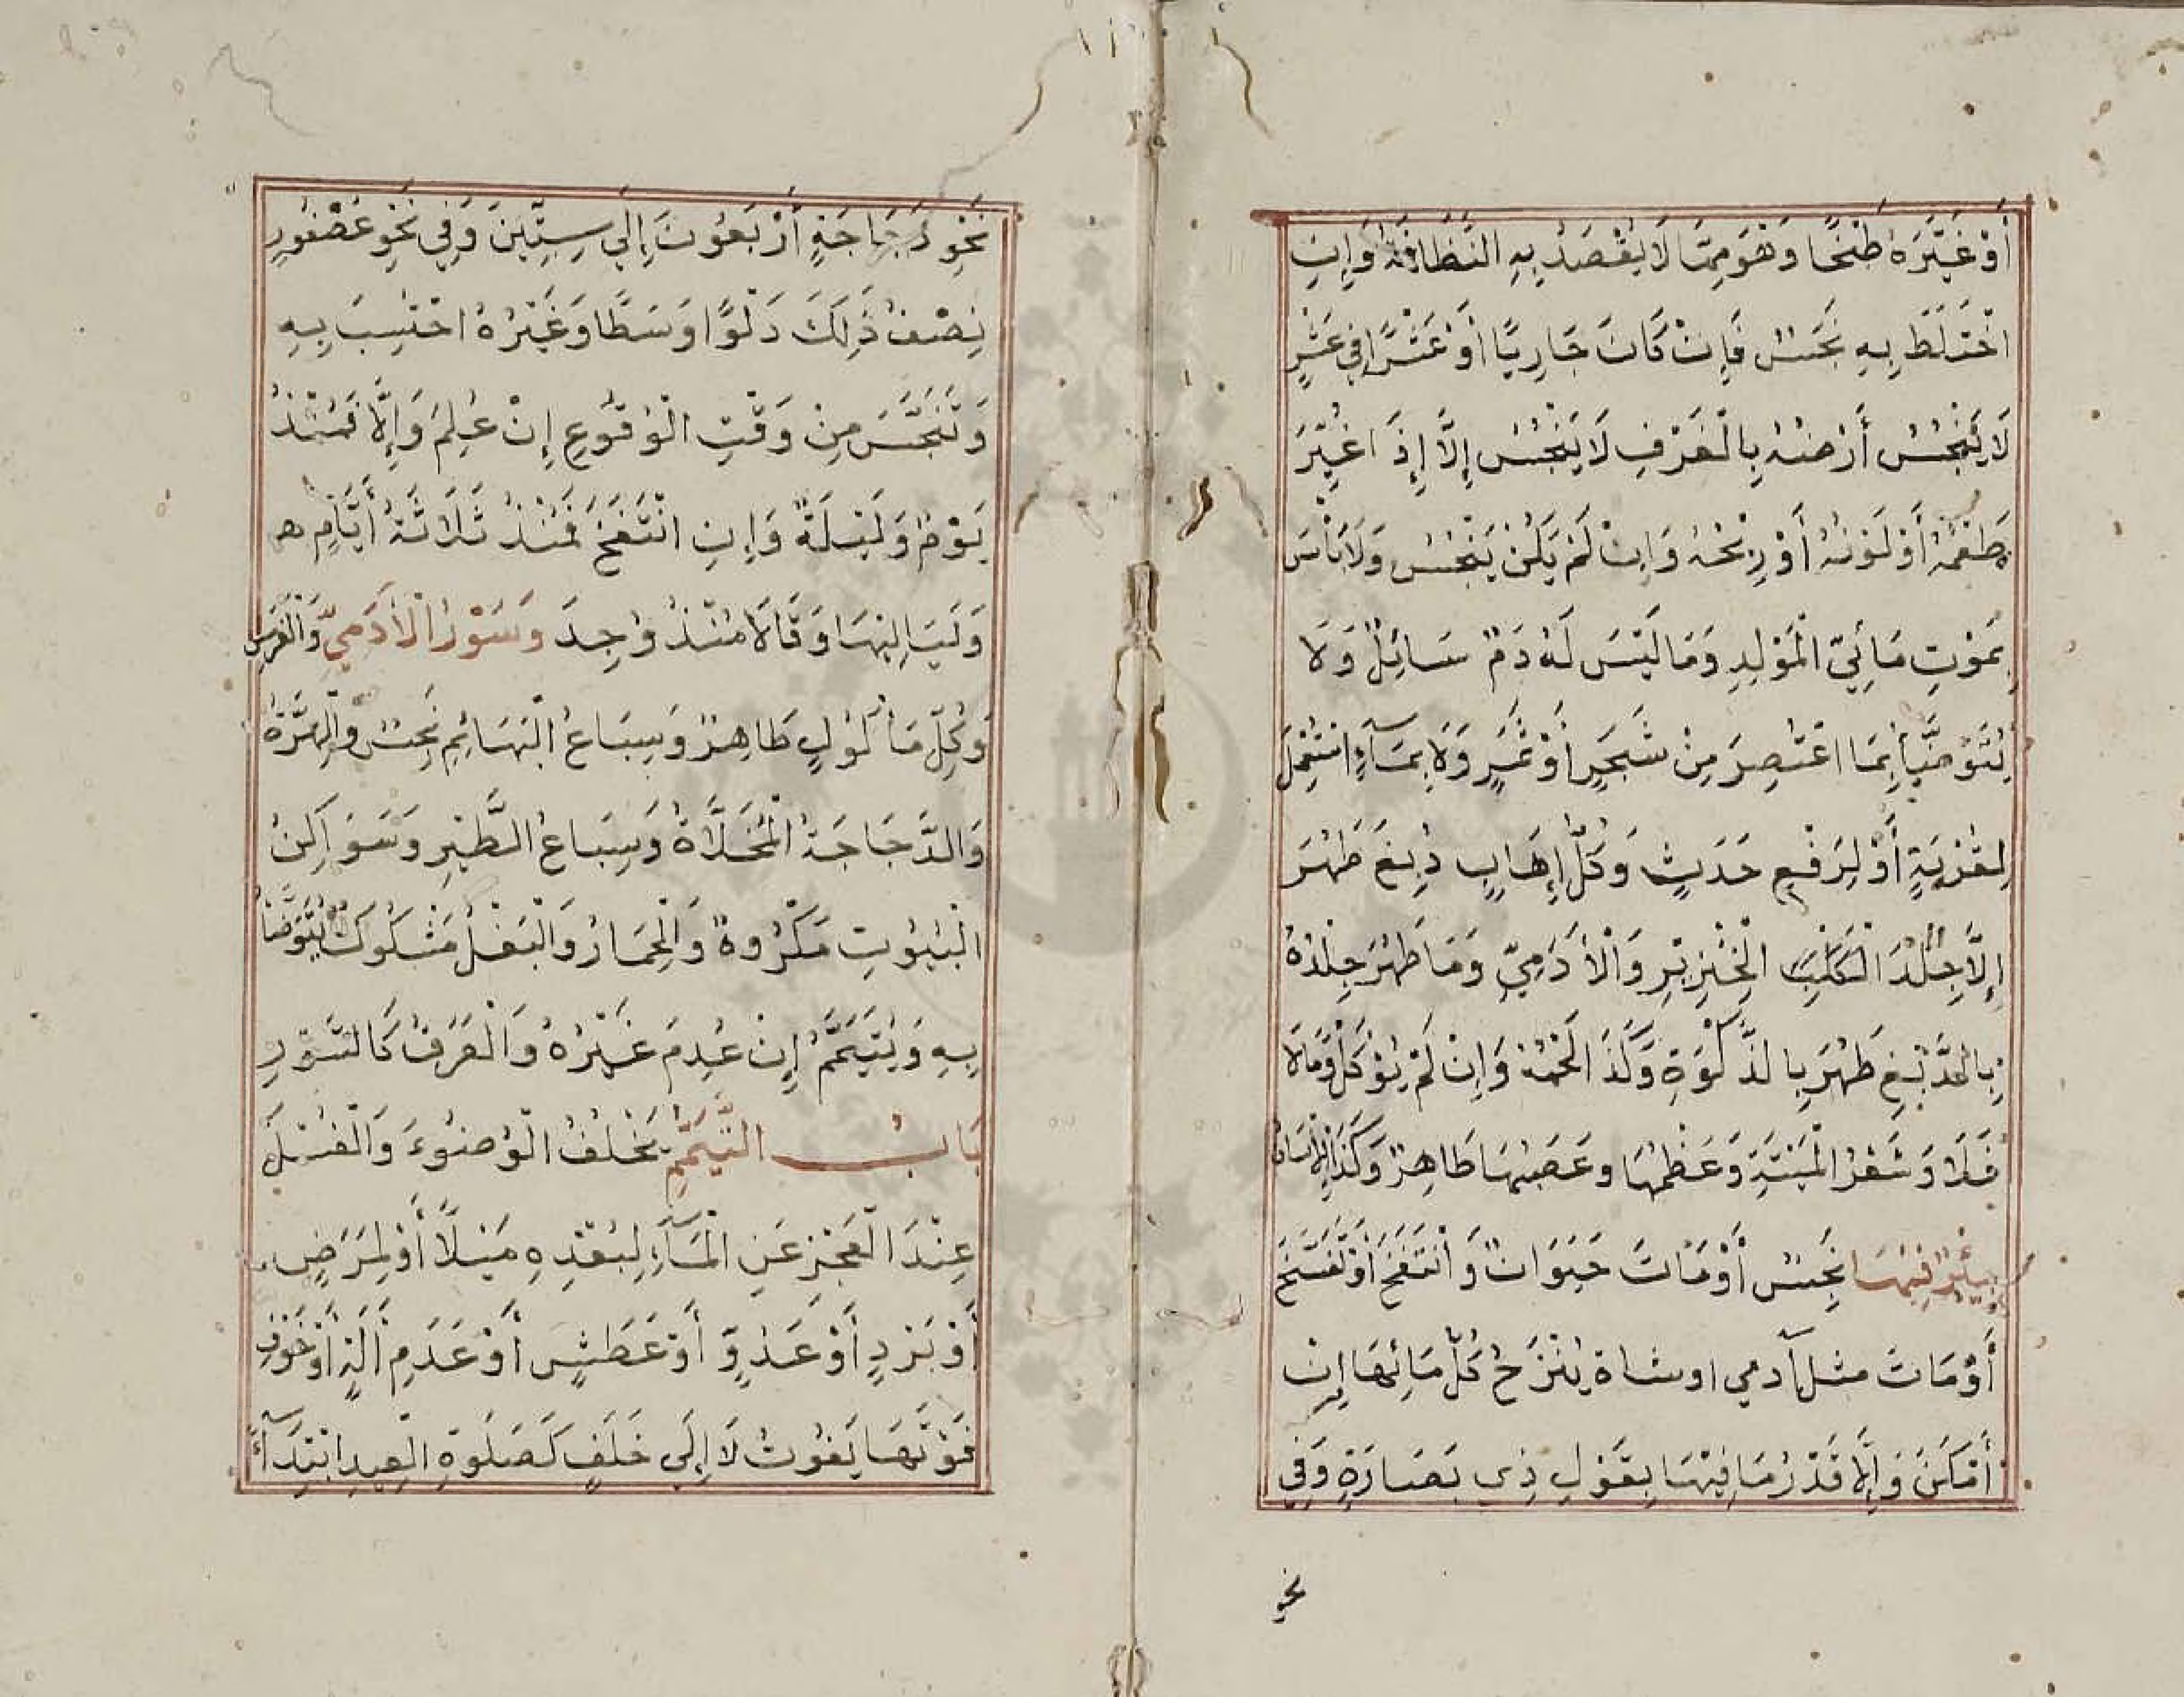 أَوْ غَيَّرَهُ طَبْخًا وَهُوَ مِمَّا لَا يُقْصَدُ بِهِ النَّظَافَةُ وَإِنِ
اخْتَلَطَ بِهِ نَجَسٌ فَإِنْ كَانَ جَارِيًا أَوْ عَشْرًا فِي عَشْرٍ
لَا يُنَجِّسُ أَرْضُهُ بِالْغَرْفِ لَا يَنْجُسُ إِلَّا إِذَ اغَيَّرَ
طَعْمُهُ أَوْ لَوْنُهُ أَوْ رِيْحُهُ وَإِنْ لَمْ يَكُنْ يَنْجُسُ وَلَا بَأْسَ
بِمَوْتِ مَائِيِّ الْمَوْلِدِ وَمَا لَيْسَ لَهُ دَمٌ سَائِلٌ وَلَا
يُتَوَضَّأُ بِمَا اعْتُصِرَ مِنْ شَجَرٍ أَوْ ثَمَرٍ وَلَا بِمَآءٍ اسْتُعْمِلَ
لِقُرْبَةٍ أَوْ لِرَفْعِ حَدَثٍ وَكُلُّ إِهَابٍ دُبِغَ طَهُرَ
إِلَّا جِلْدَ الْخِنْزِيْرِ وَالْأَدَمِيِّ وَمَا طَهُرَ جِلْدُهُ
بِالدَّبْغِ طَهُرَ بِالذَّكٰوةِ وَكَذَا لَحْمُهُ وَإِنْ لَمْ يُؤْكَلْ وَمَالَا
فَلَا وَشَعْرُ الْمَيْتَةِ وَعَظْمُهَا وعَصَبُهَا طَاهِرٌ وَكَذَا الْإِنْسَانُ
وبِيْرٌ فِيْهَا نَجِسٌ أَوْ مَاتَ حَيَوَانٌ وَانْتَفَخَ أَوْ تَفَسَّخَ
أَوْ مَاتَ مثل آدمي او شاة يُنْزَحُ كُلُّ مَائِهَا إِنْ
أَمْكَنَ وَإِلَّا قَدْرُ مَا فِيْهَا بِقَوْلِ ذِي بَصَارَةٍ وَفِي
نحو
نَحْوِ دَجَاجَةٍ أَرْبَعُوْنَ إِلَى سِتِّيْنَ وَفِي نَحْوِ عُصْفُورٍ
نِصْفُ ذٰلِكَ دَلْوًا وَسَطًا وَغَيْرُهُ احْتُسِبَ بِهِ
وَتَنَجَّسَ مِنْ وَقْتِ الْوُقُوعِ إِنْ عُلِمَ وَإِلَّا فَمُنْذُ
يَوْمٍ وَلَيْلَةٍ وَإِنِ انْتَفَخَ فَمُنْذُ ثَلَاثَةِ أَيَّامٍ
وَلَيَالِيْهَا وَقَالَا مُنْذُ وُجِدَ وَسُوْرُ الْأَدَمِيِّ وَالْفَرَسِ
وَكُلِّ مَأْكُوْلٍ طَاهِرٌ وَسِبَاعُ الْبَهَائِمِ نَجِسٌ وَالْهِرَّةُ
وَالدَّجَاجَةُ الْمُخَلَّاةُ وَسِبَاعُ الطَّيْرِ وَسَوَاكِنُ
الْبُيُوْتِ مَكْرُوهٌ وَالْحِمَارُ وَالْبَغْلُ مَشْكُوكٌ يُتَوَضَّأُ
بِهِ وَيُتَيَمَّمُ إِنْ عُدِمَ غَيْرُهُ وَالْعَرَقُ كَالسُّوْرِ
بَابُ التَّيَمُّمِ يَخْلُفُ الْوُضُوْءَ وَالْغُسْلَ
عِنْدَ الْعَجْزِ عَنِ الْمَآءِ لِبُعْدِهِ مَيْلًا أَوْ لِمَرَضٍ
أَوْ بَرْدٍ أَوْ عَدُوٍّ أَوْ عَطَشٍ أَوْ عَدَمِ أَلَةٍ أَوْ خَوْفِ
فَوْتِهَا يَفُوْتُ لَا إِلَى خَلَفٍ كَصَلٰوةِ الْعِيدِ ابْتِدَآءً